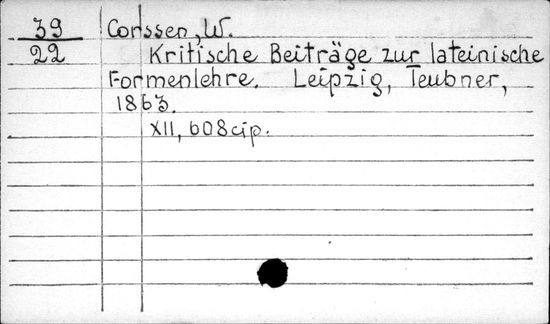 39 Corssen, W.
22 Kritische Beiträge zur lateinische
Formenlehre. Leipzig, Teubner,
1863.
XII, 608 cip.